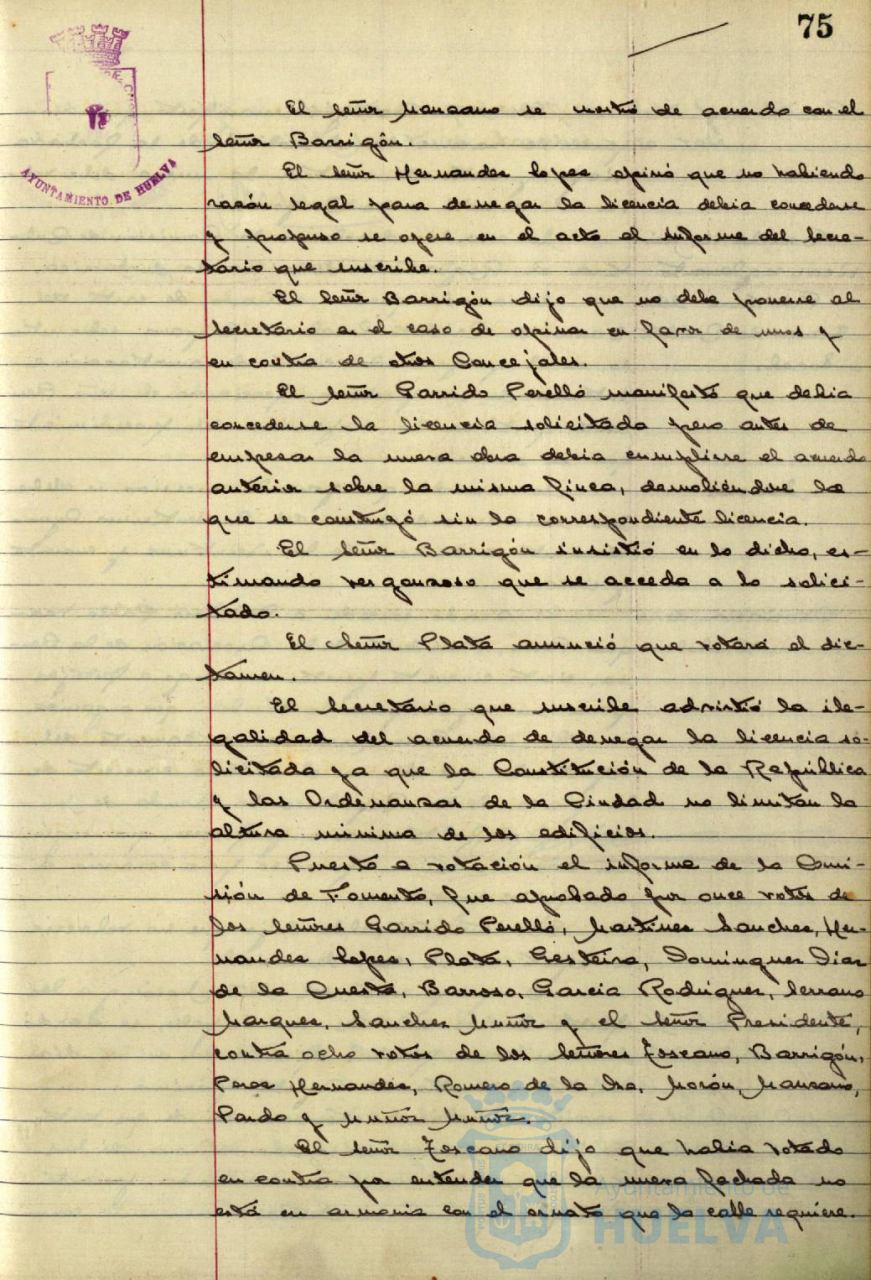 75
AYUNTAMIENTO DE HUELVA
El señor Manzano se mostró de acuerdo con el
señor Barrigón.
El señor Hernandez Lopez opinó que no habiendo
razón legal para denegar la licencia debia concederse
y propuso se opere en el acto el informe del Secre-
tario que suscribe.
El señor Barrigón dijo que no debe ponerse al
Secretario en el caso de opinar en favor de unos y
en contra de otros Concejales.
El señor Garrido Perelló manifestó que debia
concederse la licencia solicitada pero antes de
empezar la nueva obra debia cumplirse el acuerdo
anterior sobre la misma finca, demoliéndose lo
que se construyó sin la correspondiente licencia.
El señor Barrigón insistió en lo dicho, es-
timando vergonzoso que se acceda a lo solici-
tado.
El señor Plata anunció que votará el dic-
tamen.
El Secretario que suscribe advirtió la ile-
galidad del acuerdo de denegar la licencia so-
licitada ya que la Constitución de la República
y las Ordenanzas de la Ciudad no limitan la
altura minima de los edificios.
Puesto a votación el informe de la Comi-
sión de Fomento, fue aprobado por once votos de
los señores Garrido Perelló, Martinez Sanchez, Her-
nandez Lopez, Plata, Gesteira, Dominguez Diaz
de la Cuesta, Barroso, Garcia Rodriguez, Serrano
Marquez, Sanchez Muñoz y el señor Presidente,
contra ocho votos de los señores Toscano, Barrigón,
Perez Hernandez, Romero de la Osa, Morón, Manzano,
Pardo y Muñoz Muñoz.
El señor Toscano dijo que habia votado
en contra por entender que la nueva fachada no
está en armonia con el ornato que la calle requiere.
Ayuntamiento de
HUELVA